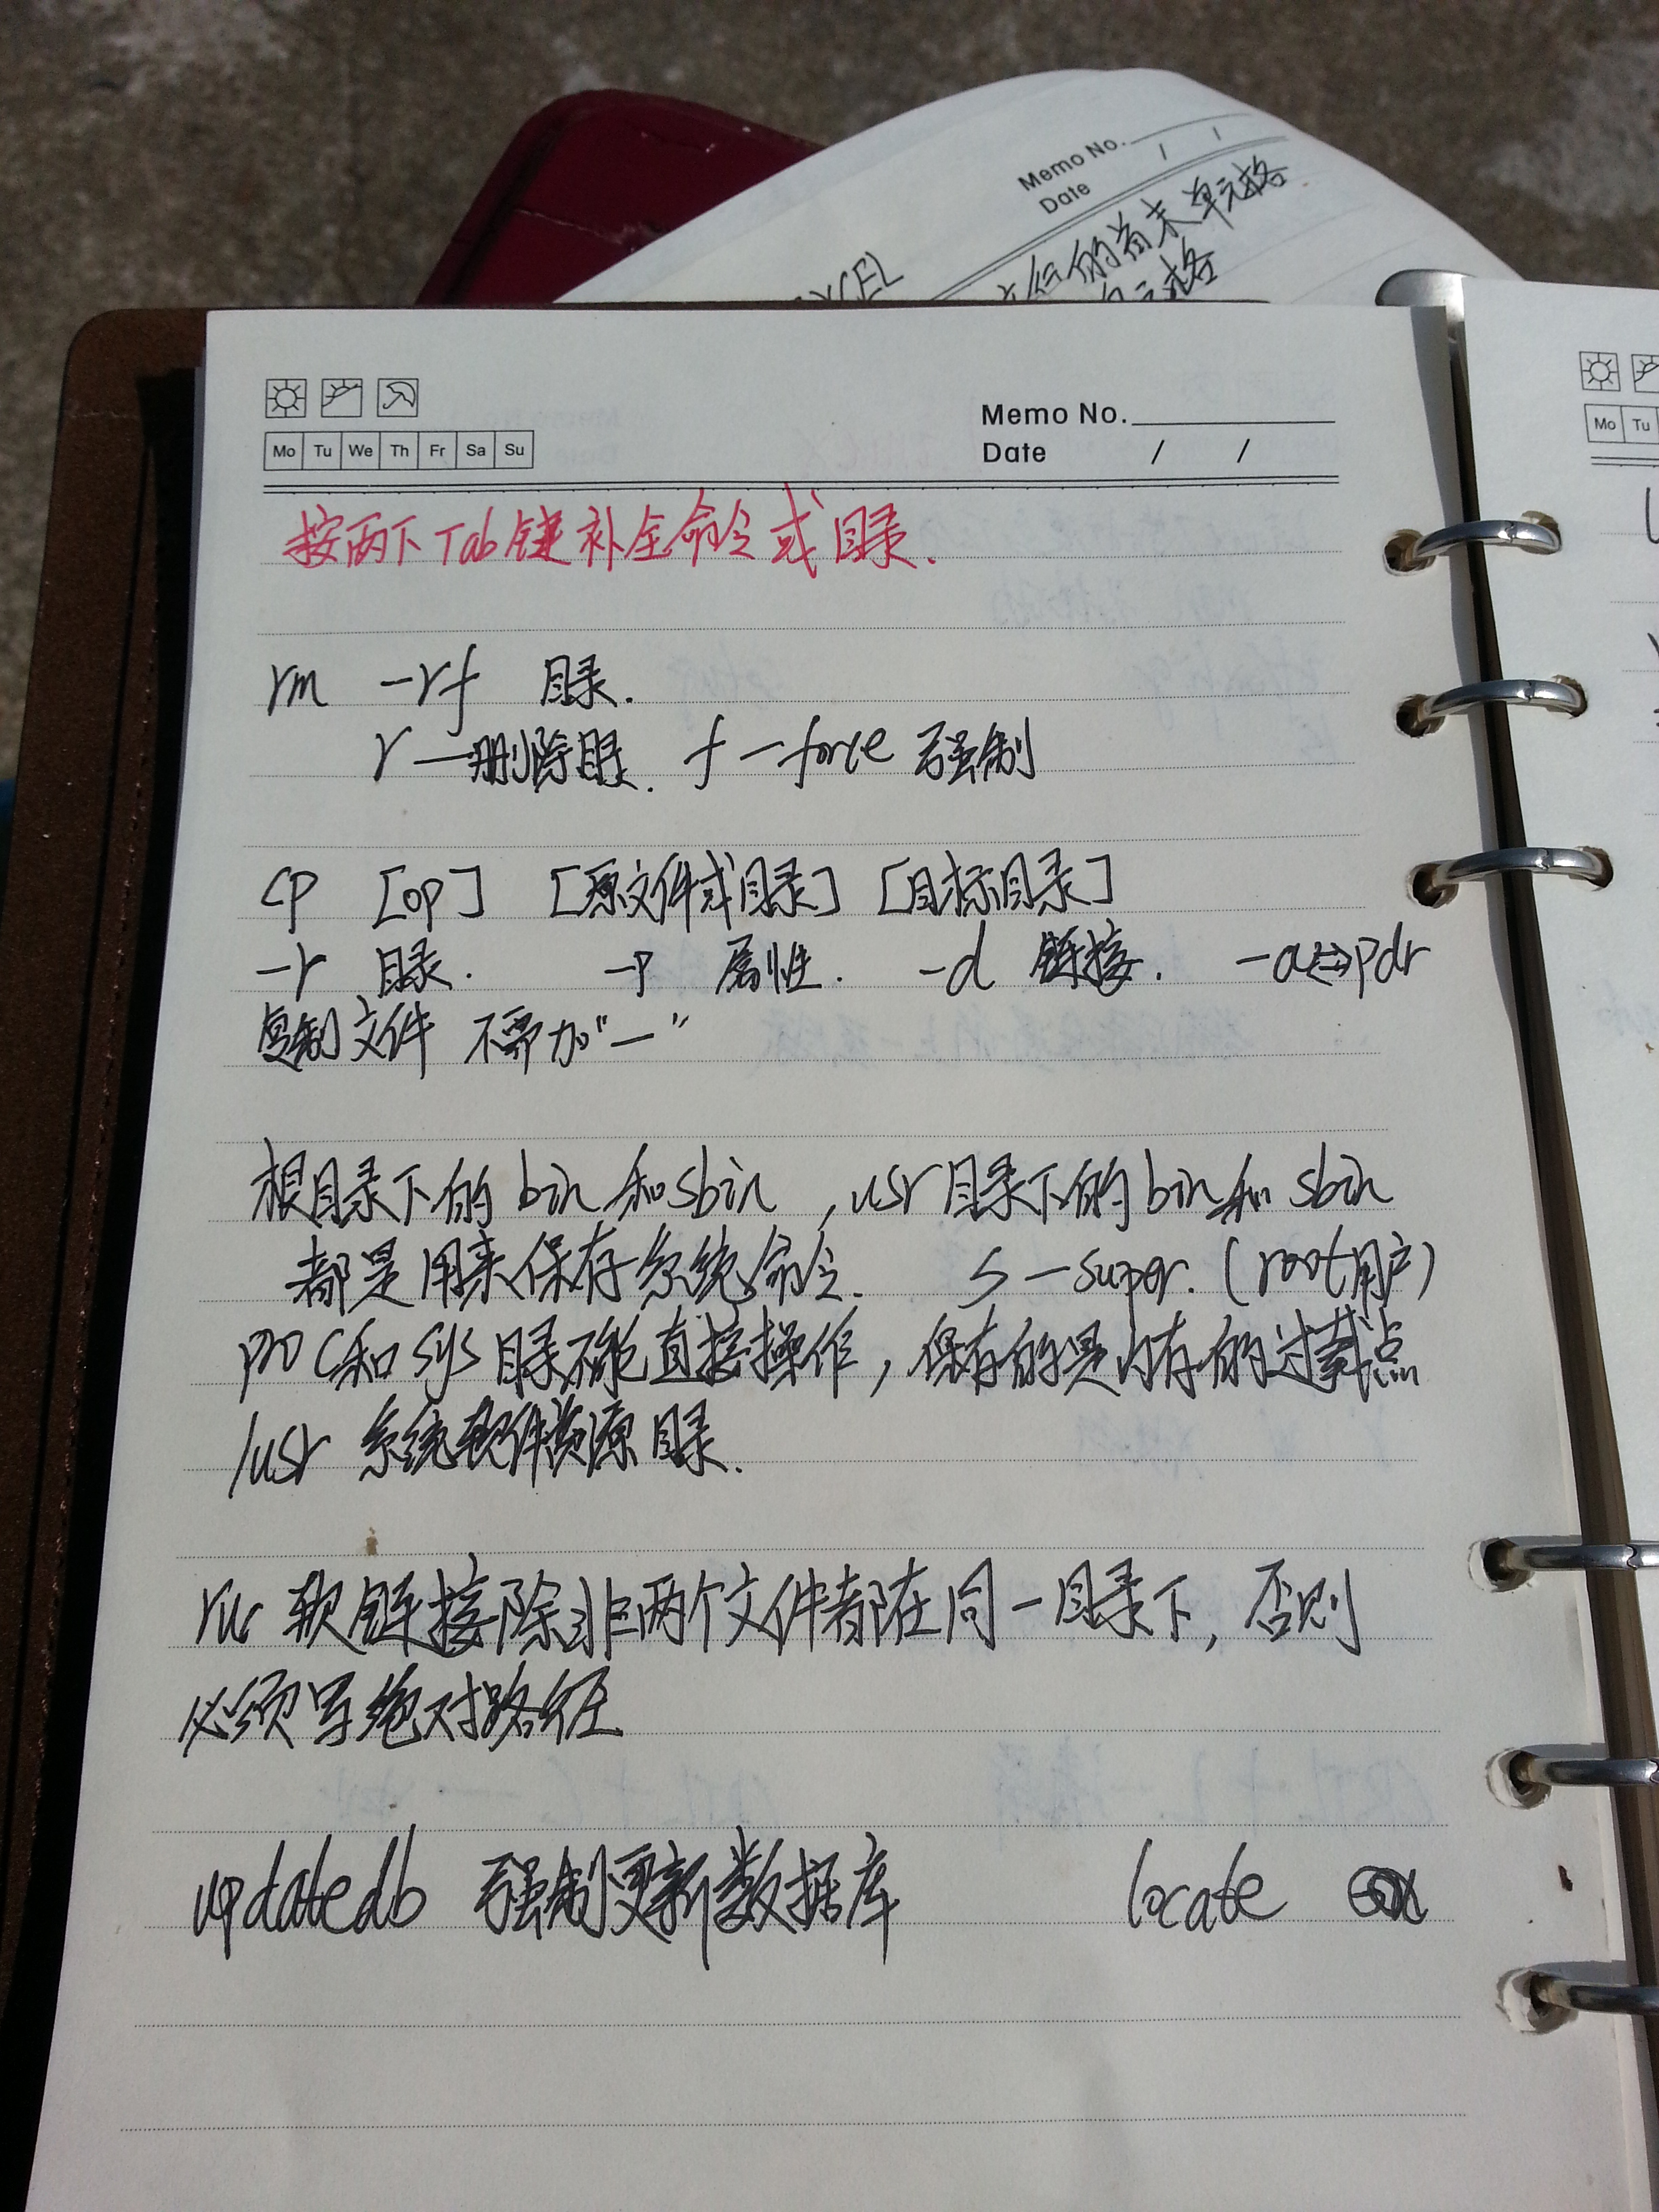 Memo No.
Date / /
EXCEL
的首末单元格
单元格
Mo Tu We Th Fr Sa Su
Memo No.
Date / /
Mo Tu
按两下Tab键补全命令或目录.
rm -rf 目录.
r—删除目录. f—force 强制
cp [op] [原文件或目录] [目标目录]
-r 目录. -p 属性. -d 链接. -a⇔pdr
复制文件 不需加"—"
根目录下的bin和sbin,usr目录下的bin和sbin
都是用来保存系统命令. s—super.(root用户)
proc和sys目录不能直接操作,保存的是内存的过载点
/usr 系统软件资源目录.
软链接除非两个文件都在同一目录下,否则
必须写绝对路径
updatedb 强制更新数据库 locate